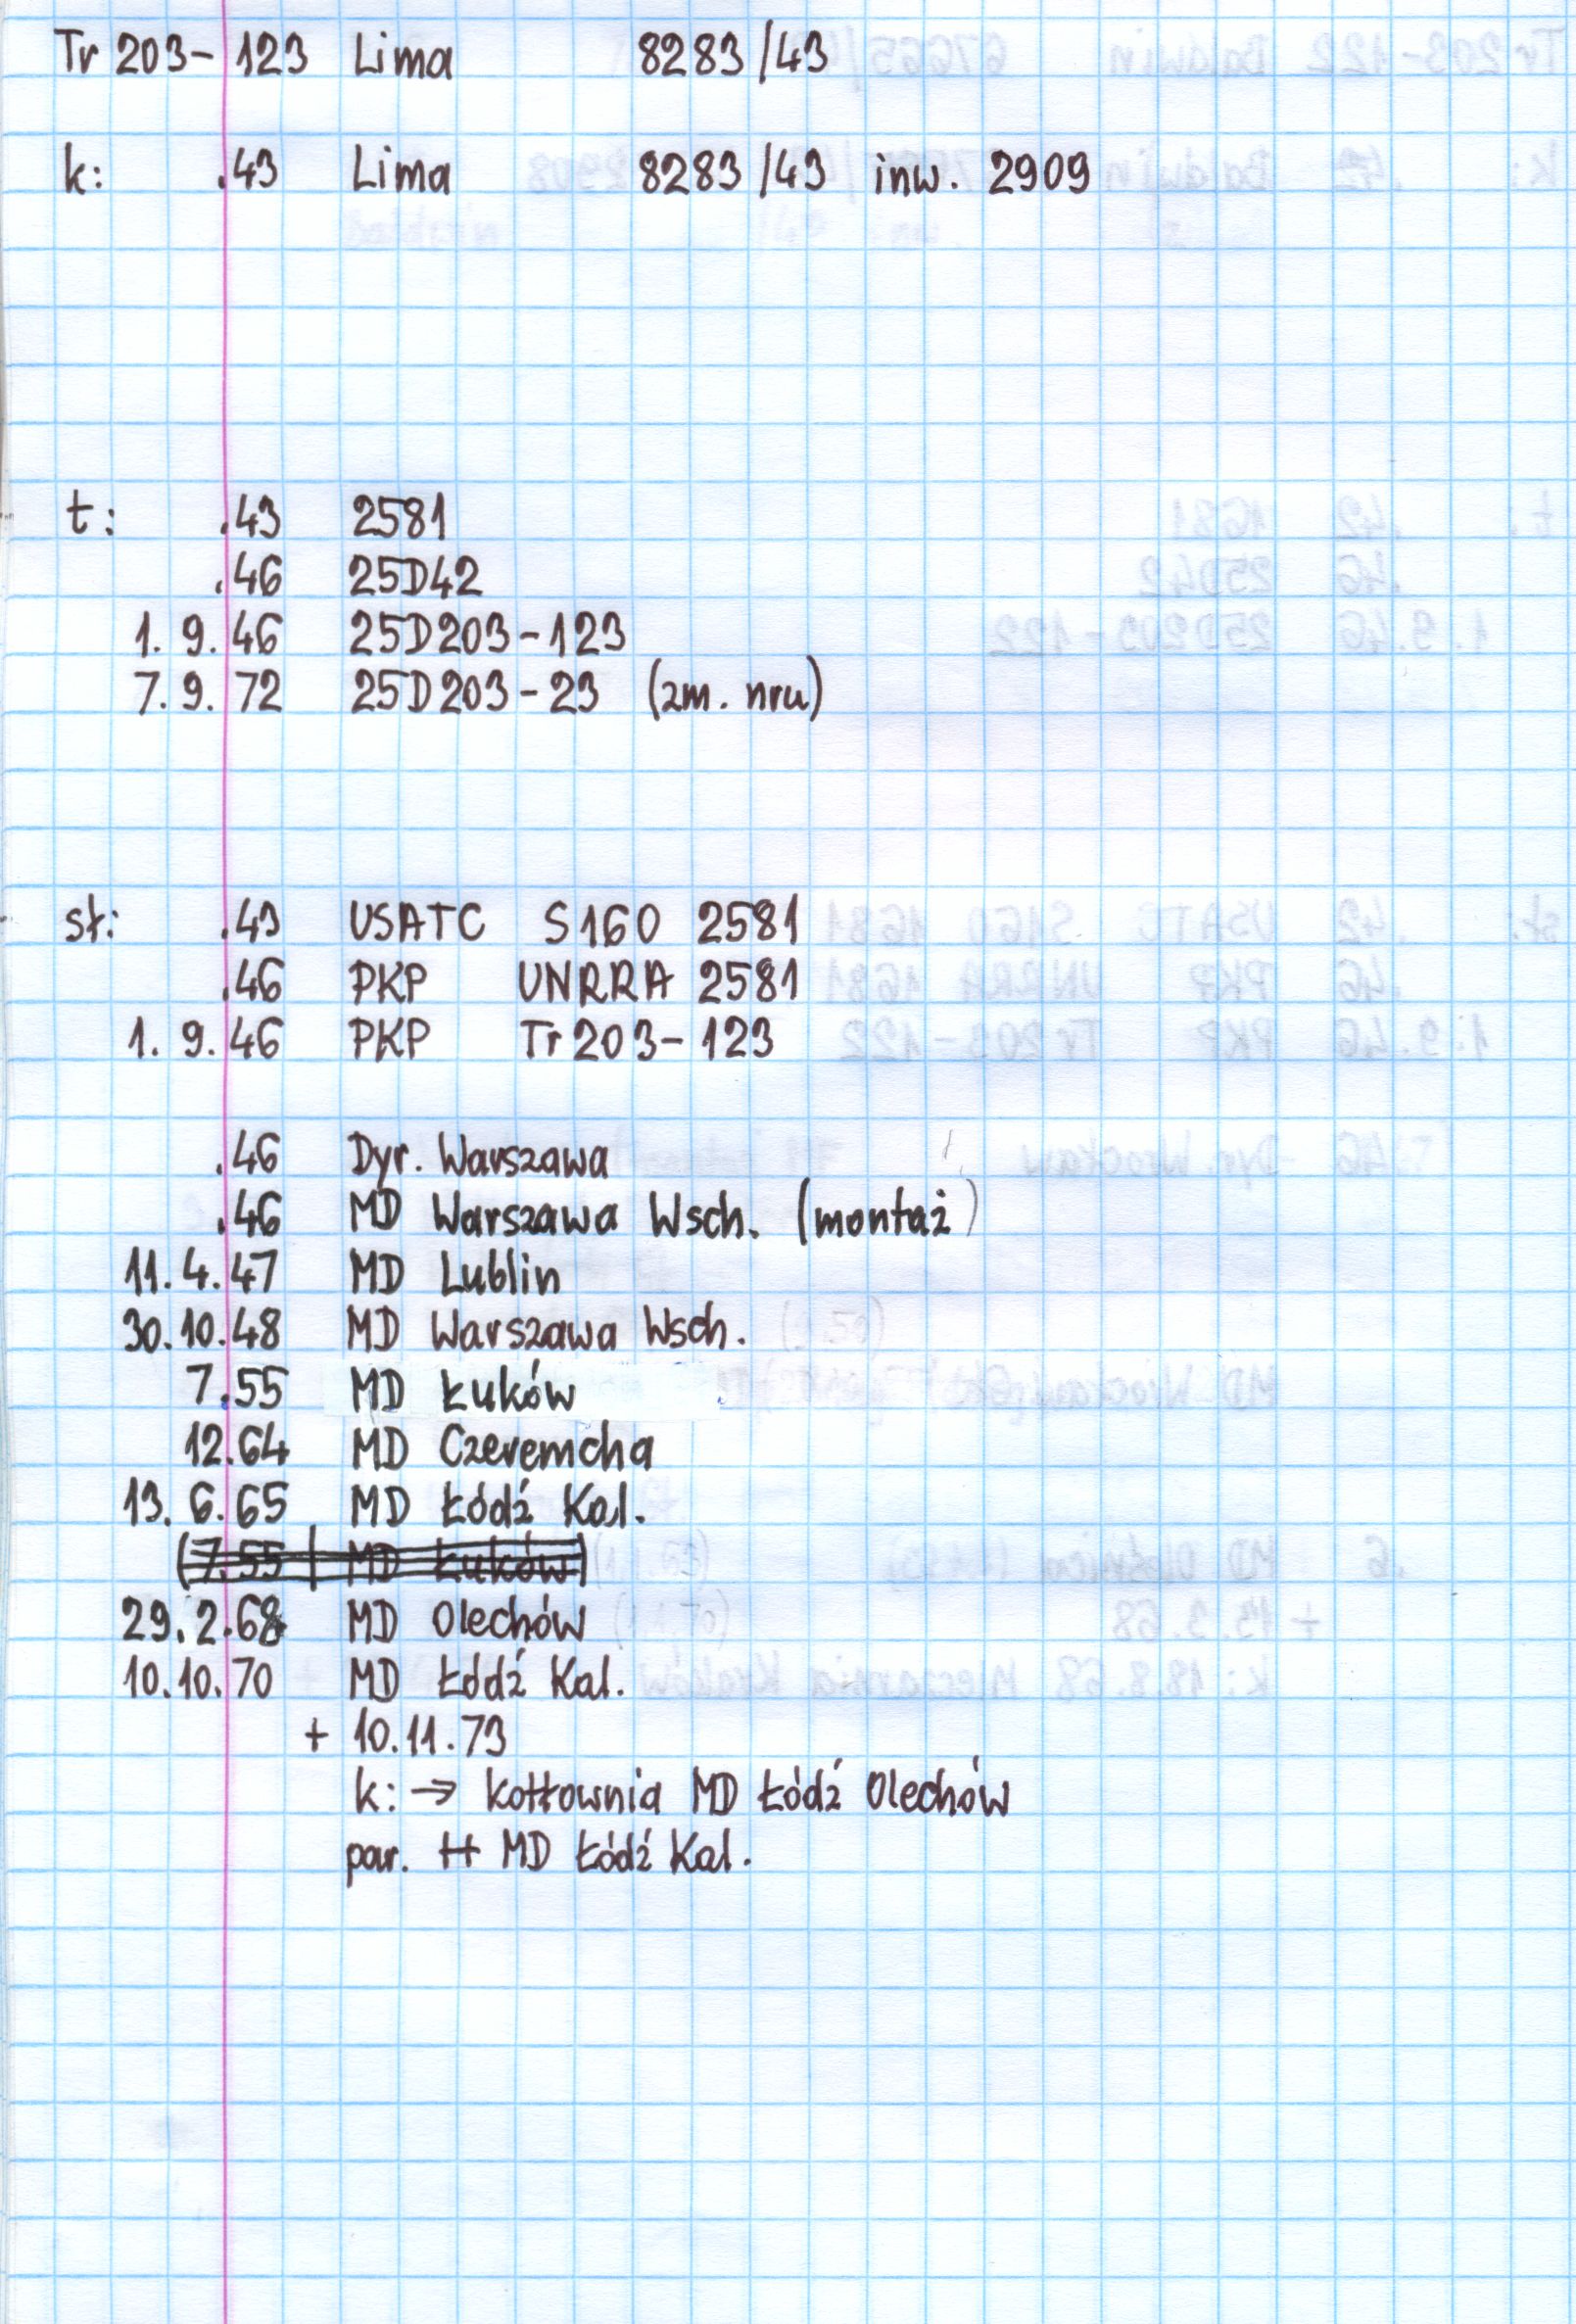 Tr 203-123 Lima 8283/43
k: .43 Lima 8283/43 inw. 2909
t: .43 2581
.46 25D42
1. 9. 46 25D203-123
7. 9. 72 25D203-23 (zm. nru)
st: .43 USATC S160 2581
.46 PKP UNRRA 2581
1. 9. 46 PKP Tr 203-123
.46 Dyr. Warszawa
.46 MD Warszawa Wsch. (montaż)
11. 4. 47 MD Lublin
30.10.48 MD Warszawa Wsch.
7.55 MD Łuków
12.64 MD Czeremcha
13. 6. 65 MD Łódź Kal.
(7.55 | MD Łuków)
29. 2. 68 MD Olechów
10.10.70 MD Łódź Kal.
+ 10.11.73
k: → kotłownia MD Łódź Olechów
par. ++ MD Łódź Kal.